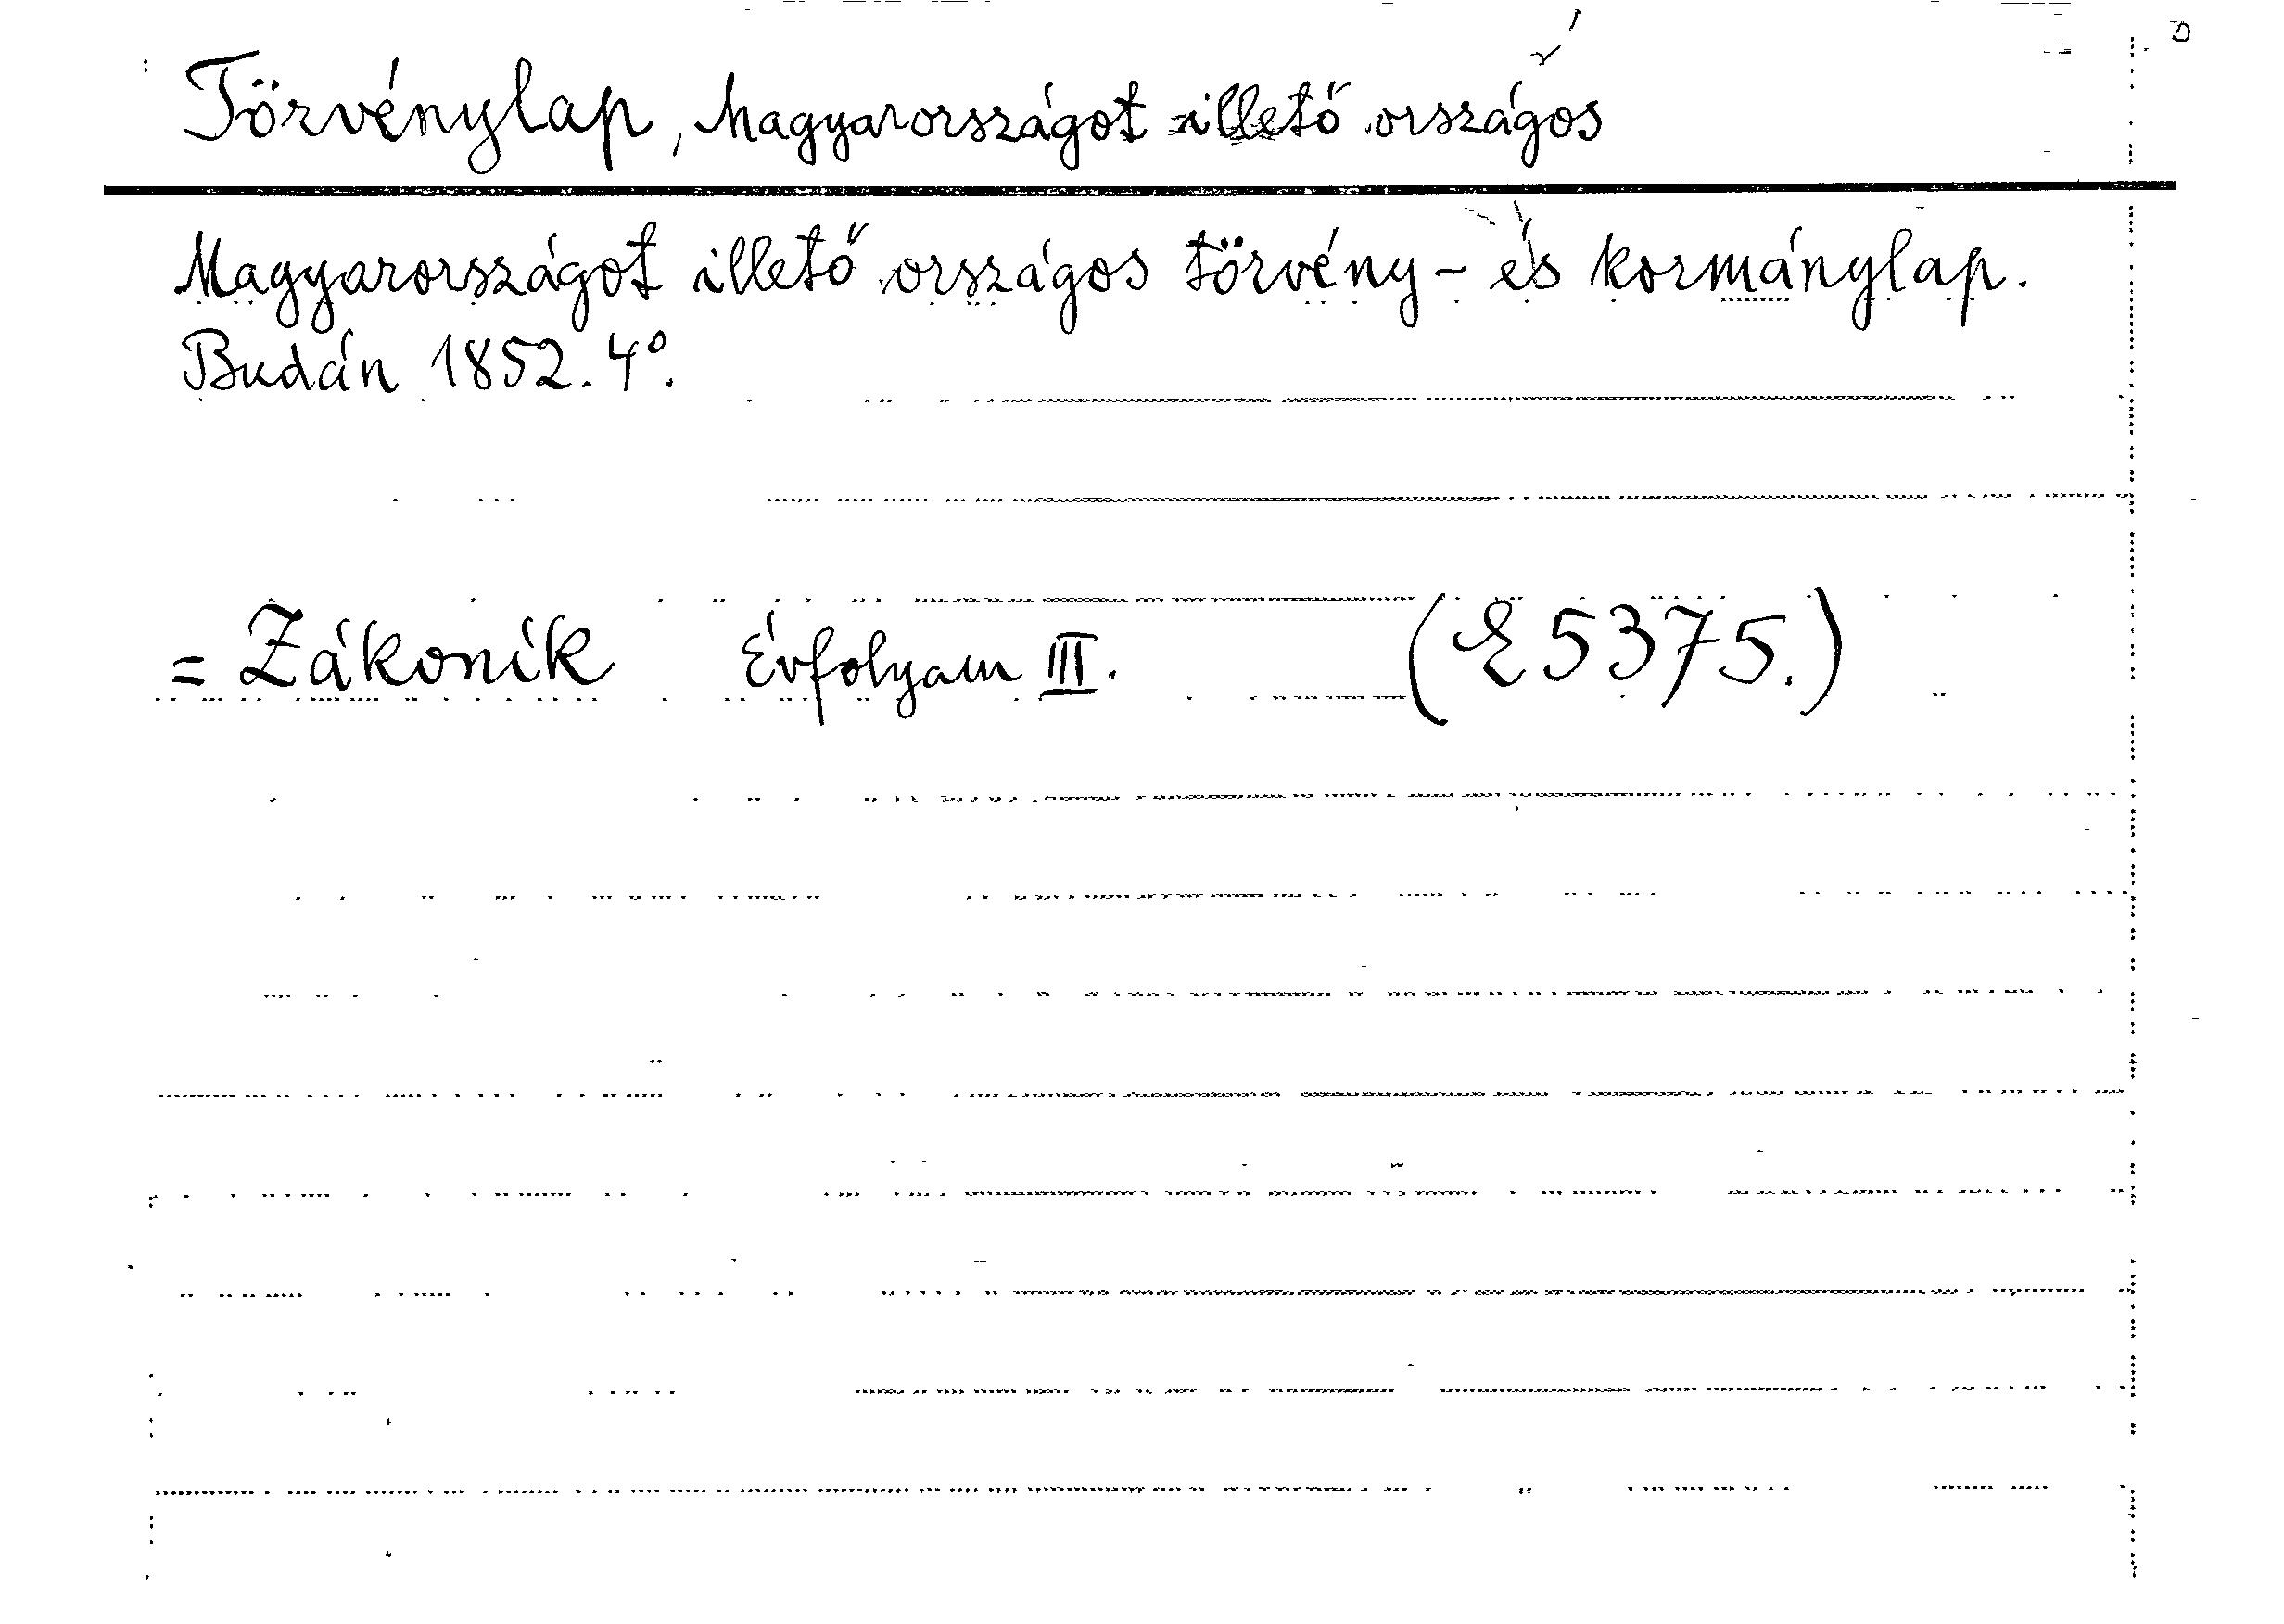 Törvénylap, Magyarországot illető országos
Magyarországot illető országos törvény- és kormánylap.
Budán 1852. 4°.
= Zákoník Évfolyam III. (E 5375.)